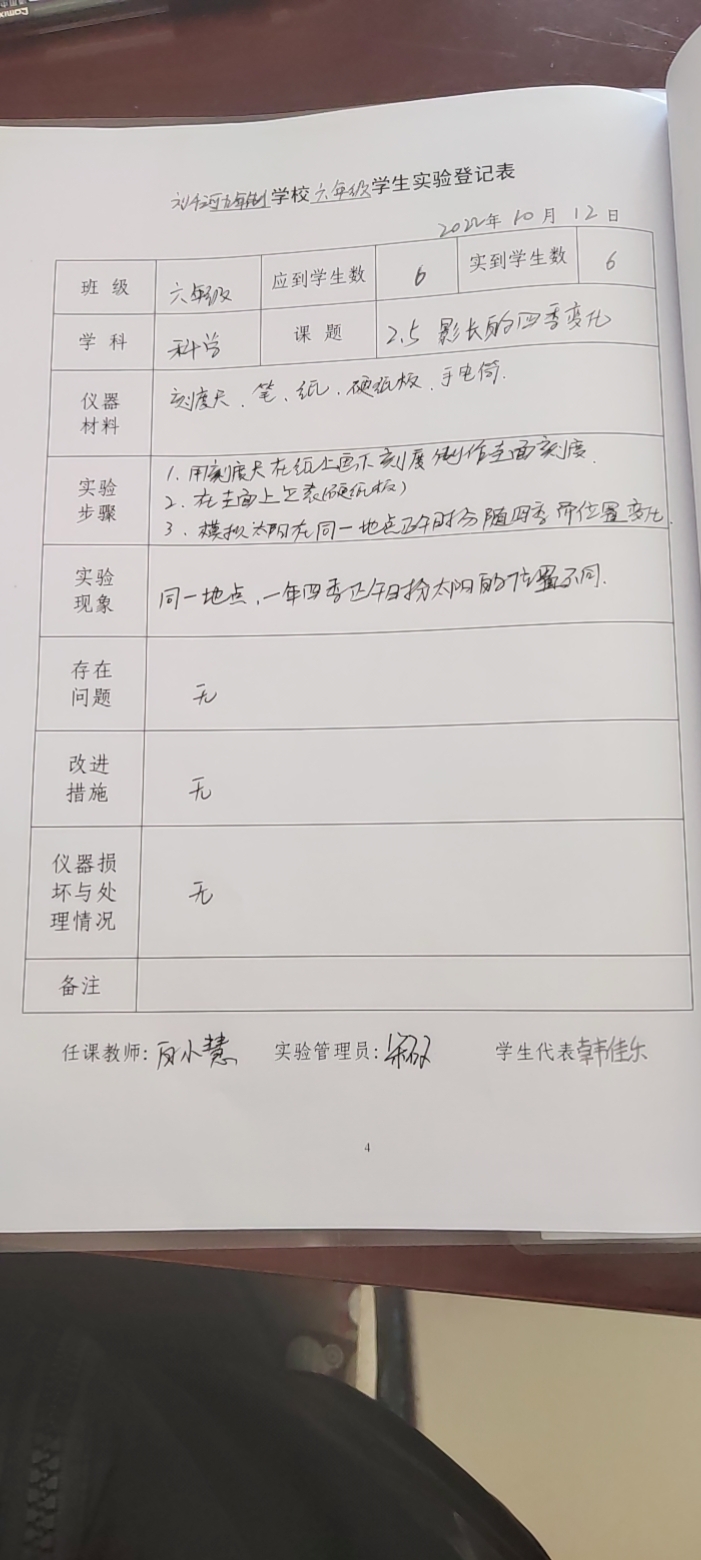 学校六年级学生实验登记表
2022年10月12日
班 级 六年级 应到学生数 6 实到学生数 6
学 科 科学 课 题 2.5 影长的四季变化
仪器材料 刻度尺、笔、纸、硬纸板、手电筒.
实验步骤
1. 用刻度尺在纸上画下刻度制作圭面刻度.
2. 在圭面上安装(硬纸板)
3. 模拟太阳在同一地点正午时分随四季而位置变化.
实验现象 同一地点,一年四季正午时分太阳的位置不同.
存在问题 无
改进措施 无
仪器损坏与处理情况 无
备注
任课教师: 小慧 实验管理员: 学生代表韩佳乐
4